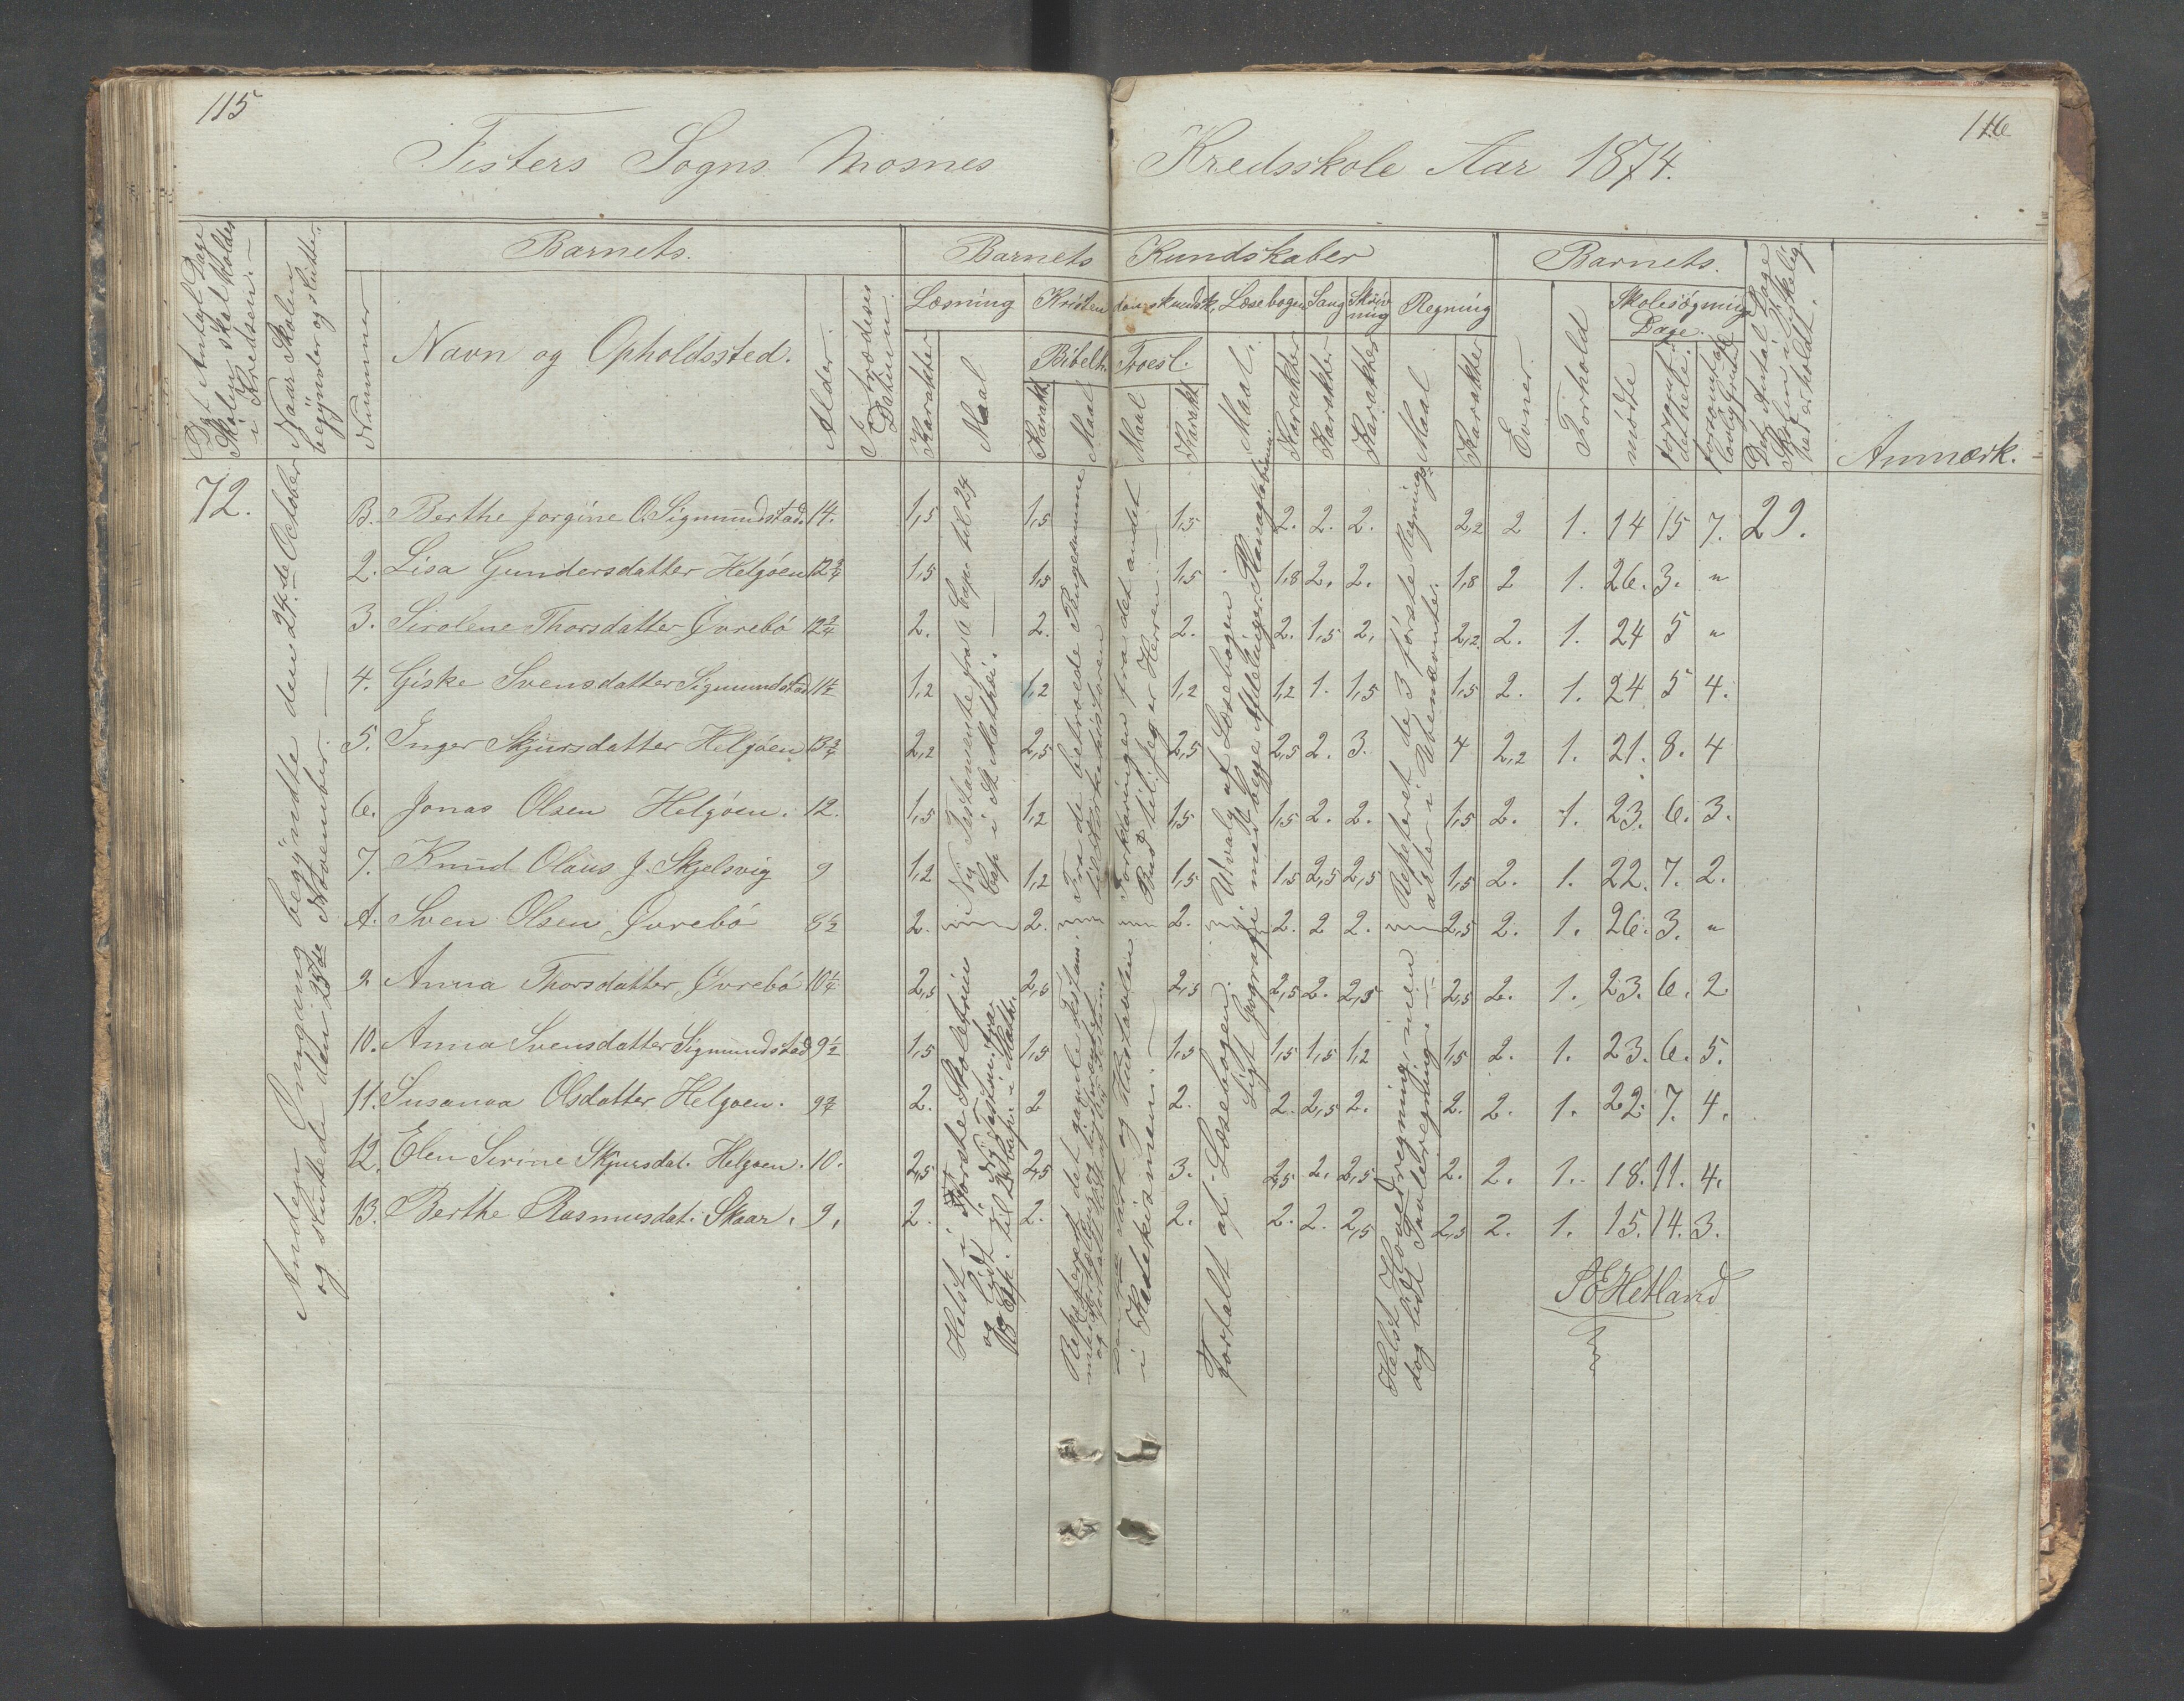 115
116
Fisters Sogns Mosnes Kredsskole Aar 1874.
Det Antal Dage Skolen skal holdes i Kredsen.
Naar Skolen begynder og slutter.
Barnets.
Nummer
Navn og Opholdssted.
Alder.
Indtrædelses Datum.
Barnets Kundskaber
Læsning
Karakter
Maal
Kristendomskundsk.
Bibelh.
Karakt
Maal
Troesl.
Maal
Karakt
Læsebogen
Maal.
Karakter
Sang
Karakter
Skrivning
Karakter
Regning
Maal
Karakter
Barnets.
Evner
Forhold
Skolesøgning Dage.
mødte
forsømt det hele.
forsømt af lovlig Grund
Det Antal Dage Skolen i Virkelighed er holdt.
Anmærk.
72.
Anden Omgang begyndte den 24de October
og sluttede den 25de November.
B. Berthe Jorgine O. Sigmundstad. 14. 1,5 1,5 1,5 2. 2. 2. 2,2 2 1. 14 15 7. 29.
2. Lisa Gundersdatter Helgøen 12 3/4 1,5 1,5 1,5 1,8 2. 2. 1,8 2 1. 26. 3. "
3. Sirolene Thorsdatter Øvrebø 12 3/4 2. 2. 2. 2. 1,5 2, 2,2 2. 1. 24 5 "
4. Giske Svensdatter Sigmundstad 11 1/2 1,2 1,2 1,2 1,2 1. 1,5 1,5 2. 1. 24 5 4.
5. Inger Skjursdatter Helgøen 13 3/4 2,2 2,5 2,5 2,5 2. 3. 4 2,2 1. 21. 8. 4
6. Jonas Olsen Helgøen. 12. 1,5 1,2 1,5 1,5 2. 2. 1,5 2. 1. 23. 6. 3.
7. Knud Olaus J. Skjelsvig 9 1,2 1,2 1,5 1,5 2,5 2,5 1,5 2. 1. 22. 7. 2.
A. Sven Olsen Øvrebø 8 1/2 2. 2. 2. 2. 2 2. 2,5 2. 1. 26. 3. "
9 Anna Thorsdatter Øvrebø 10 1/4 2,5 2,5 2,5 2,5 2. 2,5 2,5 2. 1. 23. 6. 2
10. Anna Svensdatter Sigmundstad 9 1/2 1,5 1,5 1,5 1,5 1,5 1,2 1,5 2. 1. 23. 6. 5.
11. Susanna Olsdatter Helgøen. 9 3/4 2. 2 2. 2. 2,5 2. 2. 2. 1. 22. 7. 4.
12. Elen Serine Skjursdat. Helgøen. 10. 2,5 2,5 3. 2,5 2. 2,5. 2. 2. 1. 18. 11. 4.
13. Berthe Rasmusdat. Skaar. 9. 2. 2. 2. 2. 2. 2,5 2,5 2. 1. 15. 14. 3.
i Nye Testamente fra 6 Cap. til 24
Cap. i St. Mathæi.
Fra de betroede Pengesumme
Forklaringen fra det andet
Bud til: Jeg er Herren.
Udvalg af Læsebogen
med begge Afdelinger.
Ligt Geografi
Repeteret de 3 første Regnings-
arter i Ubenævnte.
Helst i Første Skoletrin
og lidt i Nye Testm. fra
Cap. til Cap. i Math.
Repeteret det gamle Testam.
i Katekismen.
Fortalt af Læsebogen.
Helst Hovedregning, men
dog lidt Tavleregning.
S E Hetland